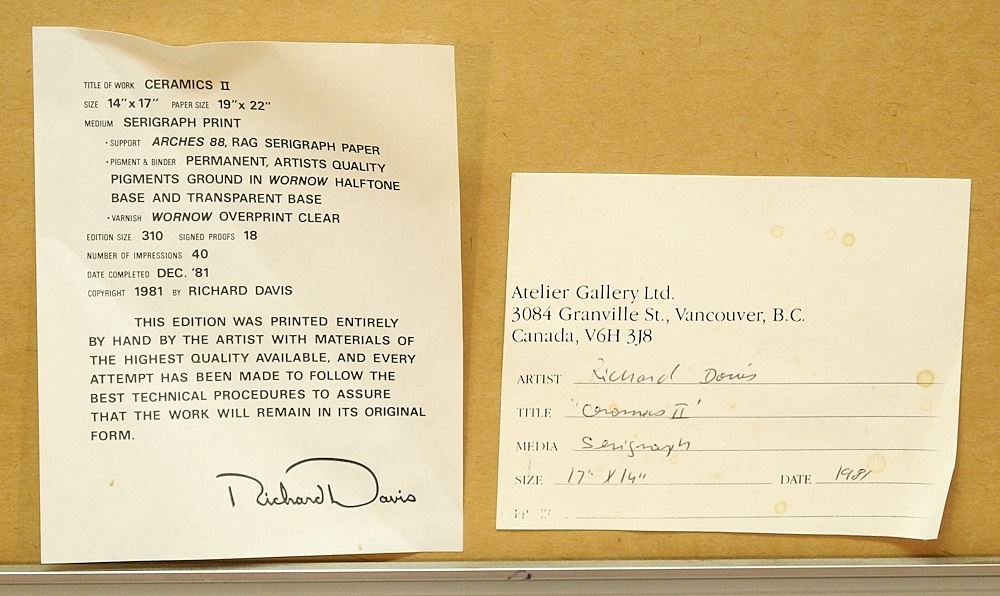 TITLE OF WORK CERAMICS II
SIZE 14"x 17" PAPER SIZE 19"x 22"
MEDIUM SERIGRAPH PRINT
• SUPPORT ARCHES 88, RAG SERIGRAPH PAPER
• PIGMENT & BINDER PERMANENT, ARTISTS QUALITY
PIGMENTS GROUND IN WORNOW HALFTONE
BASE AND TRANSPARENT BASE
• VARNISH WORNOW OVERPRINT CLEAR
EDITION SIZE 310 SIGNED PROOFS 18
NUMBER OF IMPRESSIONS 40
DATE COMPLETED DEC. '81
COPYRIGHT 1981 BY RICHARD DAVIS
THIS EDITION WAS PRINTED ENTIRELY
BY HAND BY THE ARTIST WITH MATERIALS OF
THE HIGHEST QUALITY AVAILABLE, AND EVERY
ATTEMPT HAS BEEN MADE TO FOLLOW THE
BEST TECHNICAL PROCEDURES TO ASSURE
THAT THE WORK WILL REMAIN IN ITS ORIGINAL
FORM.
Richard Davis
Atelier Gallery Ltd.
3084 Granville St., Vancouver, B.C.
Canada, V6H 3J8
ARTIST Richard Davis
TITLE "Ceramics II"
MEDIA Serigraph
SIZE 17" X 14" DATE 1981